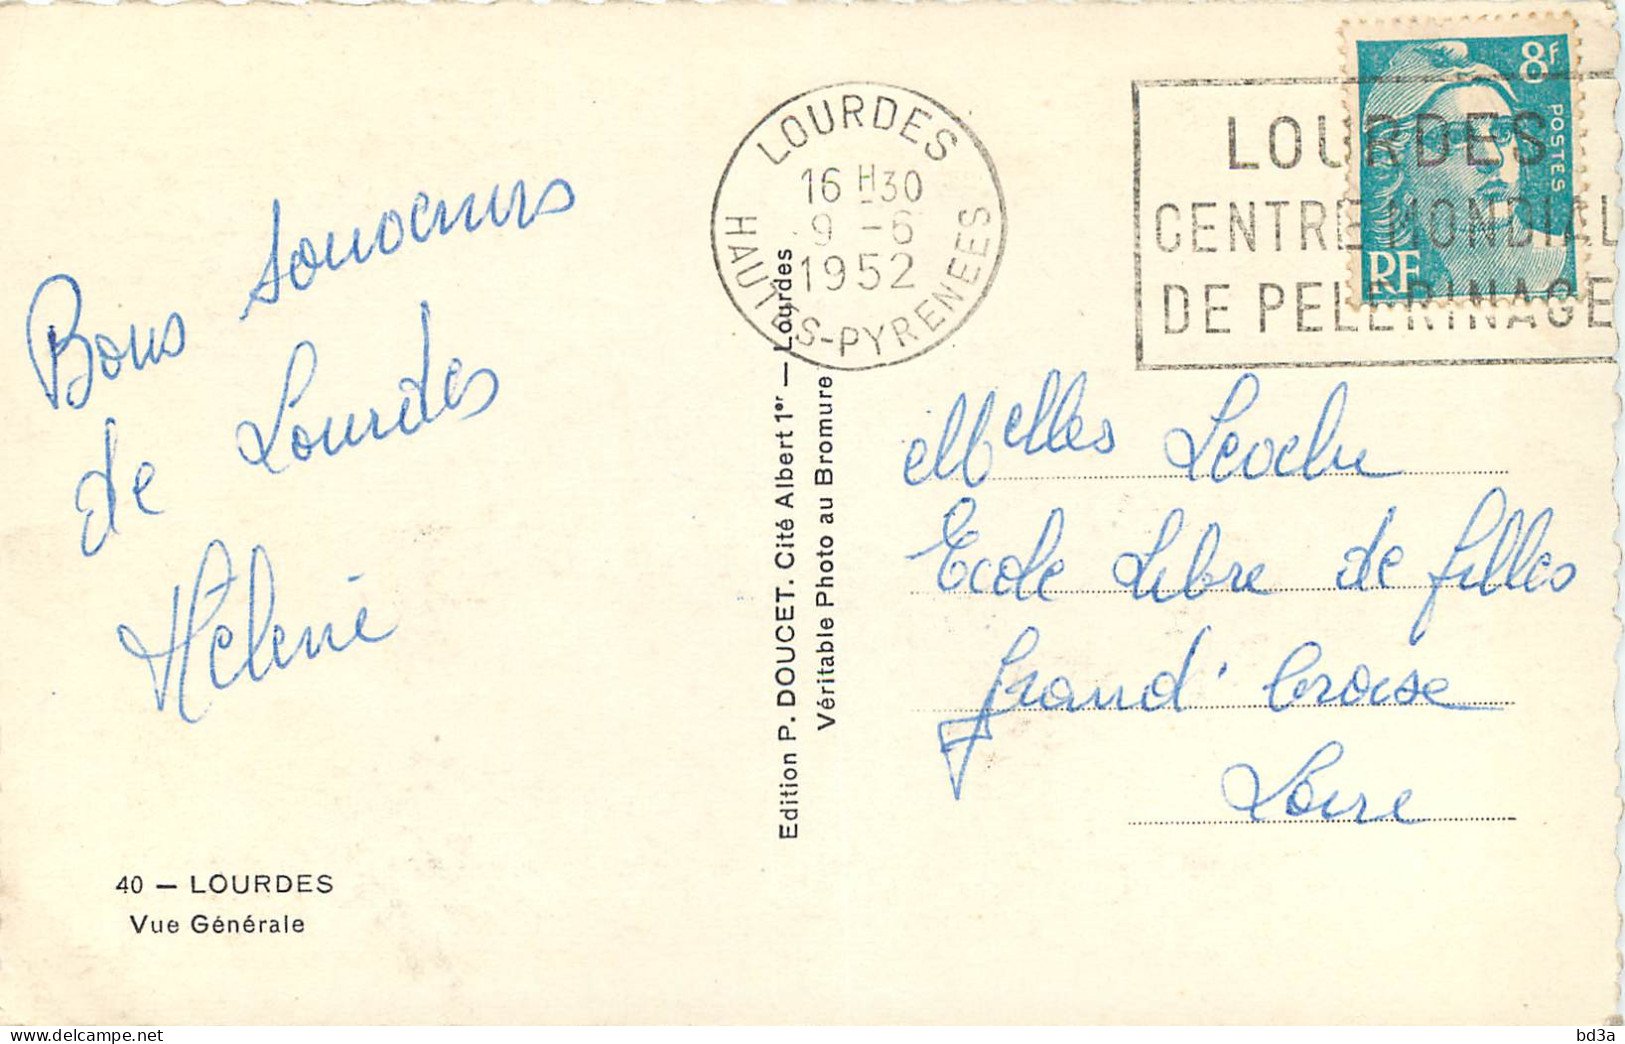 Bons souvenirs
de Lourdes
Hélène
40 — LOURDES
Vue Générale
Edition P. DOUCET. Cité Albert 1er — Lourdes
Véritable Photo au Bromure
LOURDES
16 H30
9 -6
1952
HAUTES-PYRENEES
LOURDES
CENTRE MONDIAL
DE PELERINAGE
8F
POSTES
RF
Melles
Ecole Libre de filles
Grand' Croise
Loire
bd3a